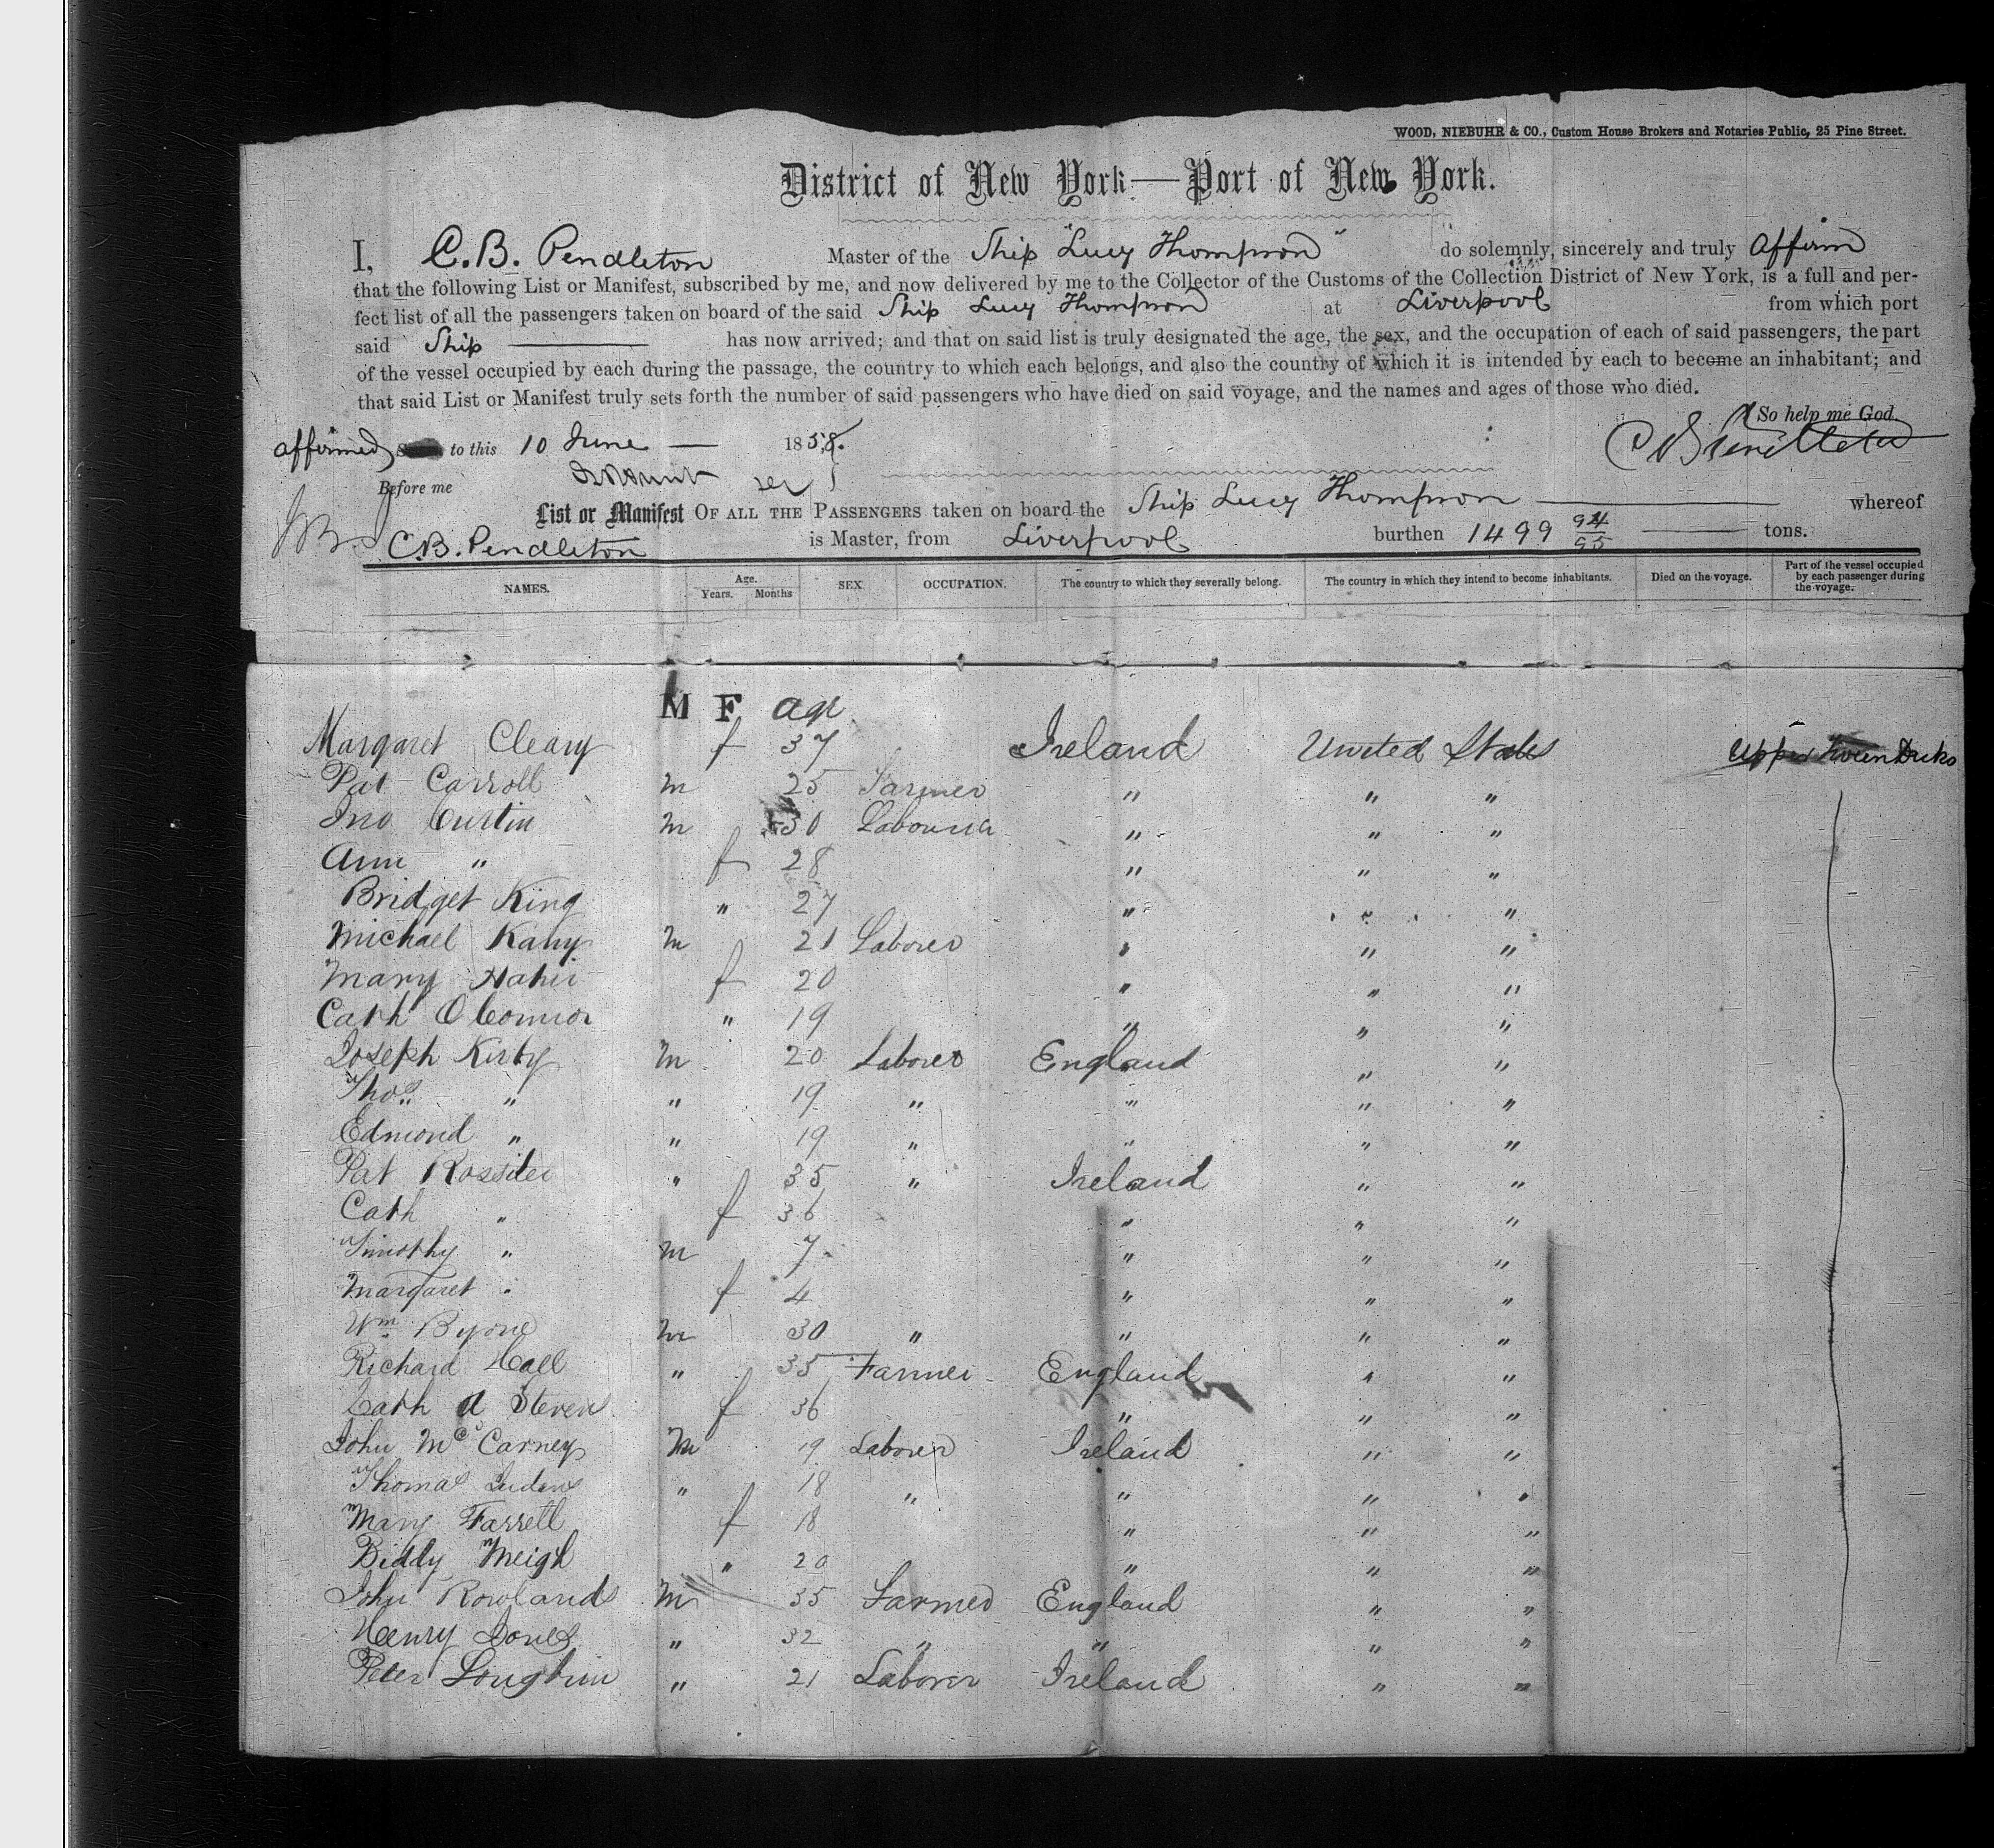 WOOD, NIEBUHR & CO., Custom House Brokers and Notaries Public, 25 Pine Street.
District of New York—Port of New York.
I, C.B. Pendleton Master of the Ship "Lucy Thompson" do solemnly, sincerely and truly affirm
that the following List or Manifest, subscribed by me, and now delivered by me to the Collector of the Customs of the Collection District of New York, is a full and per-
fect list of all the passengers taken on board of the said Ship Lucy Thompson at Liverpool from which port
said Ship has now arrived; and that on said list is truly designated the age, the sex, and the occupation of each of said passengers, the part
of the vessel occupied by each during the passage, the country to which each belongs, and also the country of which it is intended by each to become an inhabitant; and
that said List or Manifest truly sets forth the number of said passengers who have died on said voyage, and the names and ages of those who died.
So help me God.
affirmed to this 10 June — 1858. C B Pendleton
Before me
List or Manifest OF ALL THE PASSENGERS taken on board the Ship Lucy Thompson whereof
C.B. Pendleton is Master, from Liverpool burthen 1499 94/95 tons.
NAMES. Age. Years. Months SEX OCCUPATION. The country to which they severally belong. The country in which they intend to become inhabitants. Died on the voyage. Part of the vessel occupied by each passenger during the voyage.
M F age
Margaret Cleary f 37 Ireland United States Upper Decks
Pat Carroll m 25 Farmer " " "
Jno Curtin m 30 Labourer " " "
Ann " f 28 " " "
Bridget King " 27 " " "
Michael Kany m 21 Laborer " " "
Mary f 20 " " "
Cath O Connor " 19 " " "
Joseph Kirby m 20 Laborer England " "
Thos " " 19 " " " "
Edmond " " 19 " " " "
Pat Rossiter " 35 " Ireland " "
Cath " f 36 " " "
Timothy " m 7 " " "
Margaret " f 4 " " "
Wm Byrne m 30 " " " "
Richard Hall " 35 Farmer England " "
Cath A Steven f 36 " " "
John McCarney m 19 Laborer Ireland " "
Thomas " 18 " " " "
Mary Farrell f 18 " " "
Biddy Meigh " 20 " " "
John Rowland m 35 Farmer England " "
Henry Jones " 32 " " " "
Peter Loughlin " 21 Laborer Ireland " "